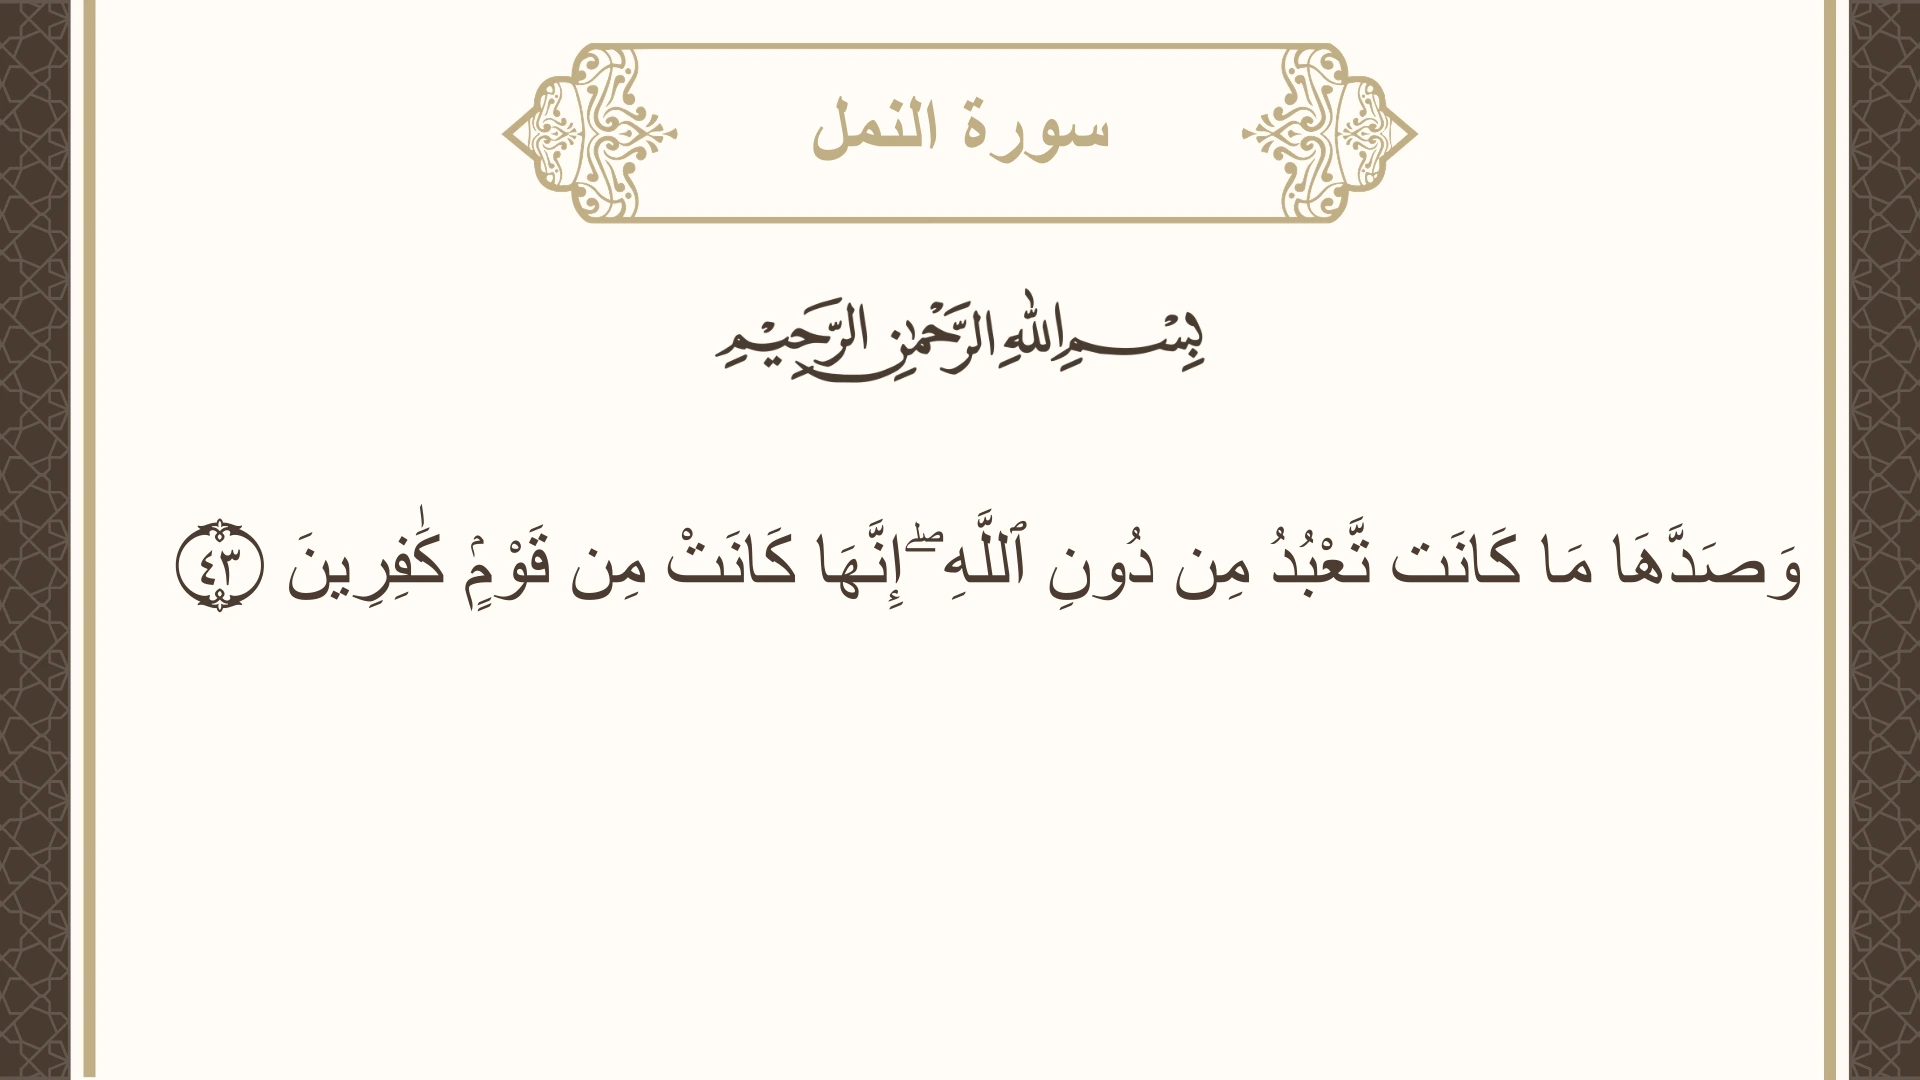 سورة النمل
بِسْمِ اللهِ الرَّحْمٰنِ الرَّحِيْمِ
وَصَدَّهَا مَا كَانَت تَّعْبُدُ مِن دُونِ ٱللَّهِ ۖ إِنَّهَا كَانَتْ مِن قَوْمٍۢ كَٰفِرِينَ ٤٣